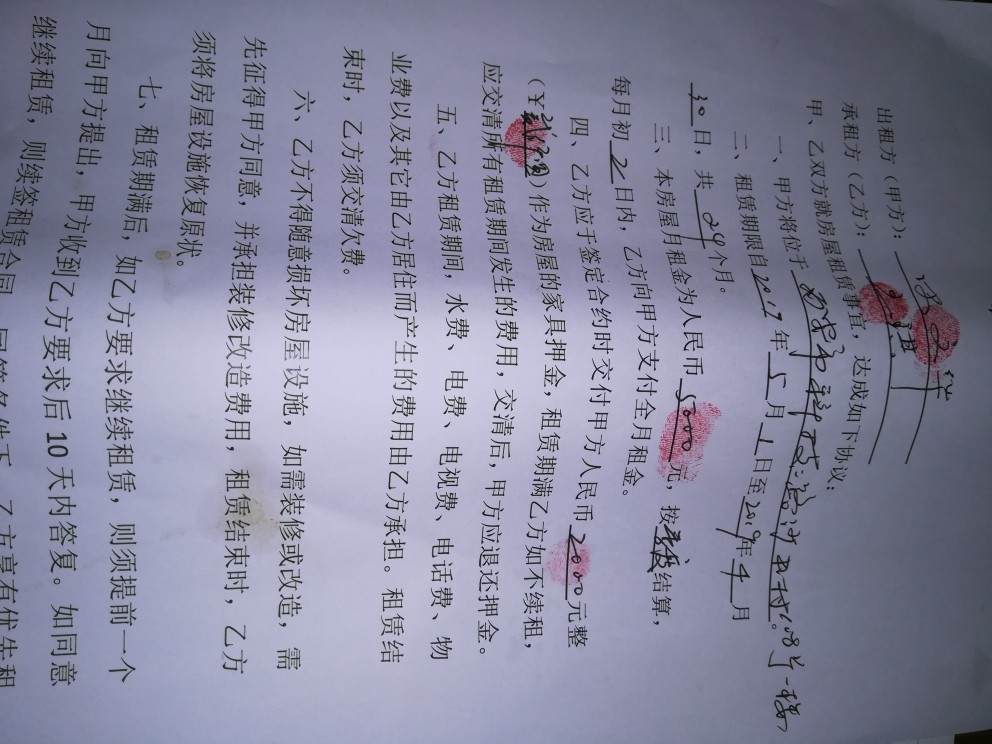 出租方（甲方）：
承租方（乙方）：
甲、乙双方就房屋租赁事宜，达成如下协议：
一、甲方将位于 108号一楼
二、租赁期限自2017年5月1日至2019年4月
30日，共24个月。
三、本房屋月租金为人民币5000元，按季度结算，
每月初 日内，乙方向甲方支付全月租金。
四、乙方应于签定合约时交付甲方人民币2000元整
（¥ ）作为房屋的家具押金，租赁期满乙方如不续租，
应交清所有租赁期间发生的费用，交清后，甲方应退还押金。
五、乙方租赁期间，水费、电费、电视费、电话费、物
业费以及其它由乙方居住而产生的费用由乙方承担。租赁结
束时，乙方须交清欠费。
六、乙方不得随意损坏房屋设施，如需装修或改造，需
先征得甲方同意，并承担装修改造费用，租赁结束时，乙方
须将房屋设施恢复原状。
七、租赁期满后，如乙方要求继续租赁，则须提前一个
月向甲方提出，甲方收到乙方要求后10天内答复。如同意
继续租赁，则续签租赁合同。同等条件下，乙方享有优先租